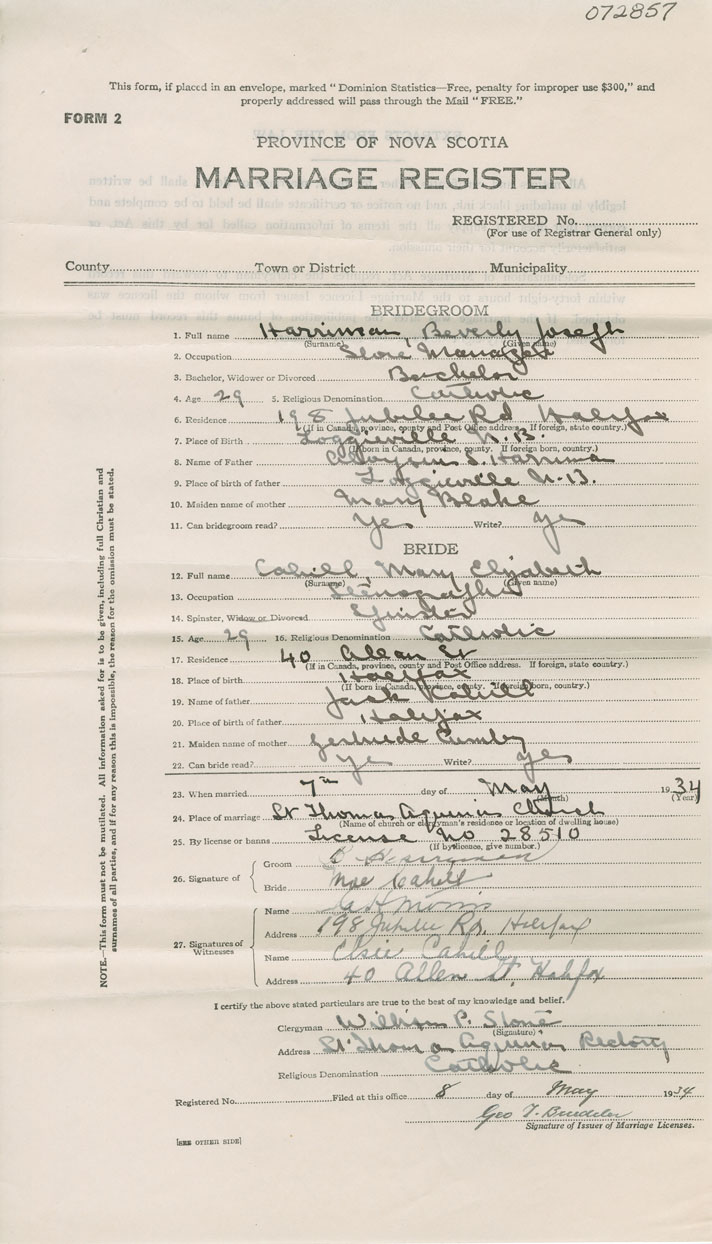 072857
This form, if placed in an envelope, marked "Dominion Statistics—Free, penalty for improper use $300," and
properly addressed will pass through the Mail "FREE."
FORM 2
PROVINCE OF NOVA SCOTIA
MARRIAGE REGISTER
REGISTERED No.
(For use of Registrar General only)
County Town or District Municipality
BRIDEGROOM
1. Full name Harriman, Beverly Joseph
(Surname) (Given name)
2. Occupation Store Manager
3. Bachelor, Widower or Divorced Bachelor
4. Age 29 5. Religious Denomination Catholic
6. Residence 198 Jubilee Rd Halifax
(If in Canada, province, county and Post Office address. If foreign, state country.)
7. Place of Birth Loggieville N.B.
(If born in Canada, province, county. If foreign born, country.)
8. Name of Father Aloysius S. Harriman
9. Place of birth of father Loggieville N.B.
10. Maiden name of mother Mary Blake
11. Can bridegroom read? Yes Write? Yes
BRIDE
12. Full name Cahill Mary Elizabeth
(Surname) (Given name)
13. Occupation Stenographer
14. Spinster, Widow or Divorced Spinster
15. Age 29 16. Religious Denomination Catholic
17. Residence 40 Allan St
(If in Canada, province, county and Post Office address. If foreign, state country.)
18. Place of birth Halifax
(If born in Canada, province, county. If foreign born, country.)
19. Name of father Jack Cahill
20. Place of birth of father Halifax
21. Maiden name of mother Gertrude
22. Can bride read? Yes Write? Yes
23. When married 7th day of May 1934
(Month) (Year)
24. Place of marriage St Thomas Aquinas Church
(Name of church or clergyman's residence or location of dwelling house)
25. By license or banns License No 28510
(If by licence, give number.)
26. Signature of
Groom
Bride Mae Cahill
27. Signatures of Witnesses
Name A H Morris
Address 198 Jubilee Rd. Halifax
Name Elsie Cahill
Address 40 Allen St, Halifax
I certify the above stated particulars are true to the best of my knowledge and belief.
Clergyman William P. Stone
(Signature)
Address St Thomas Aquinas Rectory
Religious Denomination Catholic
Registered No. Filed at this office 8 day of May 1934
Geo T.
Signature of Issuer of Marriage Licenses.
[SEE OTHER SIDE]
NOTE.—This form must not be mutilated. All information asked for is to be given, including full Christian and
surnames of all parties, and if for any reason this is impossible, the reason for the omission must be stated.